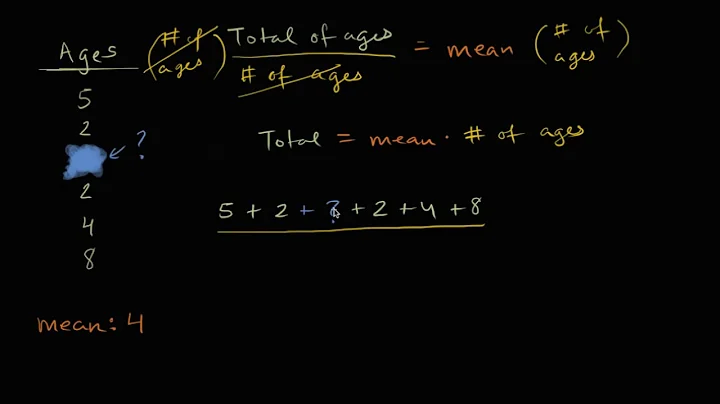 Ages
5
2
?
2
4
8
mean: 4
(# of ages) Total of ages / # of ages = mean (# of ages)
Total = mean · # of ages
5 + 2 + ? + 2 + 4 + 8